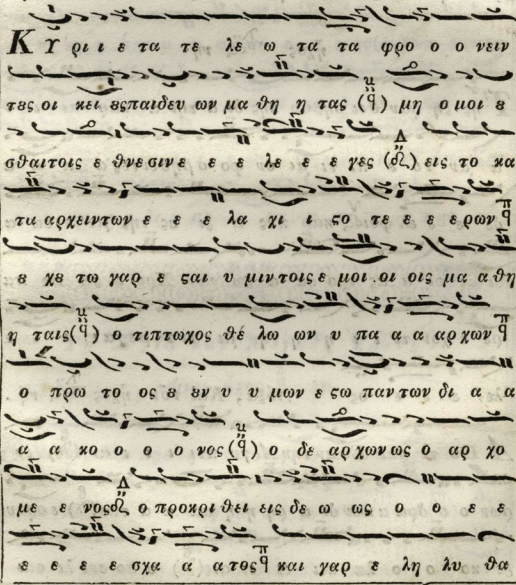 Κυ ρι ι ε τα τε λε ω τα τα φρο ο ο νειν
τȣς οι κει ȣςπαιδευ ων μα θη η τας (q̈) μη ο μοι ȣ
σθαιτοις ε θνεσιν ε ε ε λε ε ε γες (Δ) εις το κα
τα αρχειντων ε ε ε λα χι ι ϛο τε ε ε ε ρων
ȣ χȣ τω γαρ ε ϛαι υ μιντοις ε μοι οι οις μα α θη
η ταις(q̈) ο τιπτωχος θε λω ων υ πα α α αρ χων
ο πρω το ος ε ȣν υ υ μων ε ϛω παντων δι α α
α α κο ο ο ο νος(q̈) ο δε αρχων ως ο αρ χο
με ε νος Δ ο προκρι θει εις δε ω ως ο ε ε
ε ε ε ε σχα α α τος και γαρ ε λη λυ θα